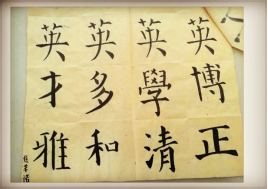 英博正
英學清
英多和
英才雅